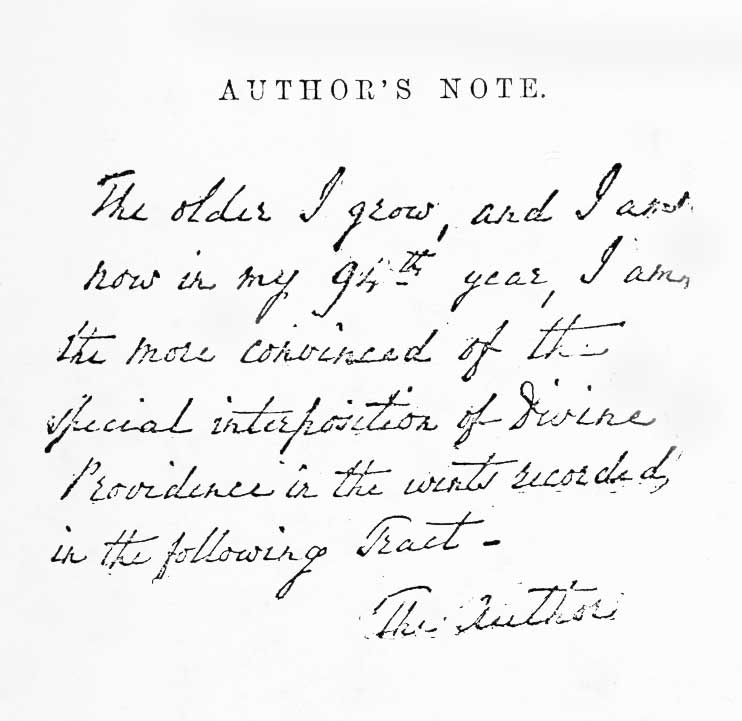 AUTHOR'S NOTE.
The older I grow, and I am
now in my 94th year, I am
the more convinced of the
special interposition of Divine
Providence in the events recorded,
in the following Tract -
The Author